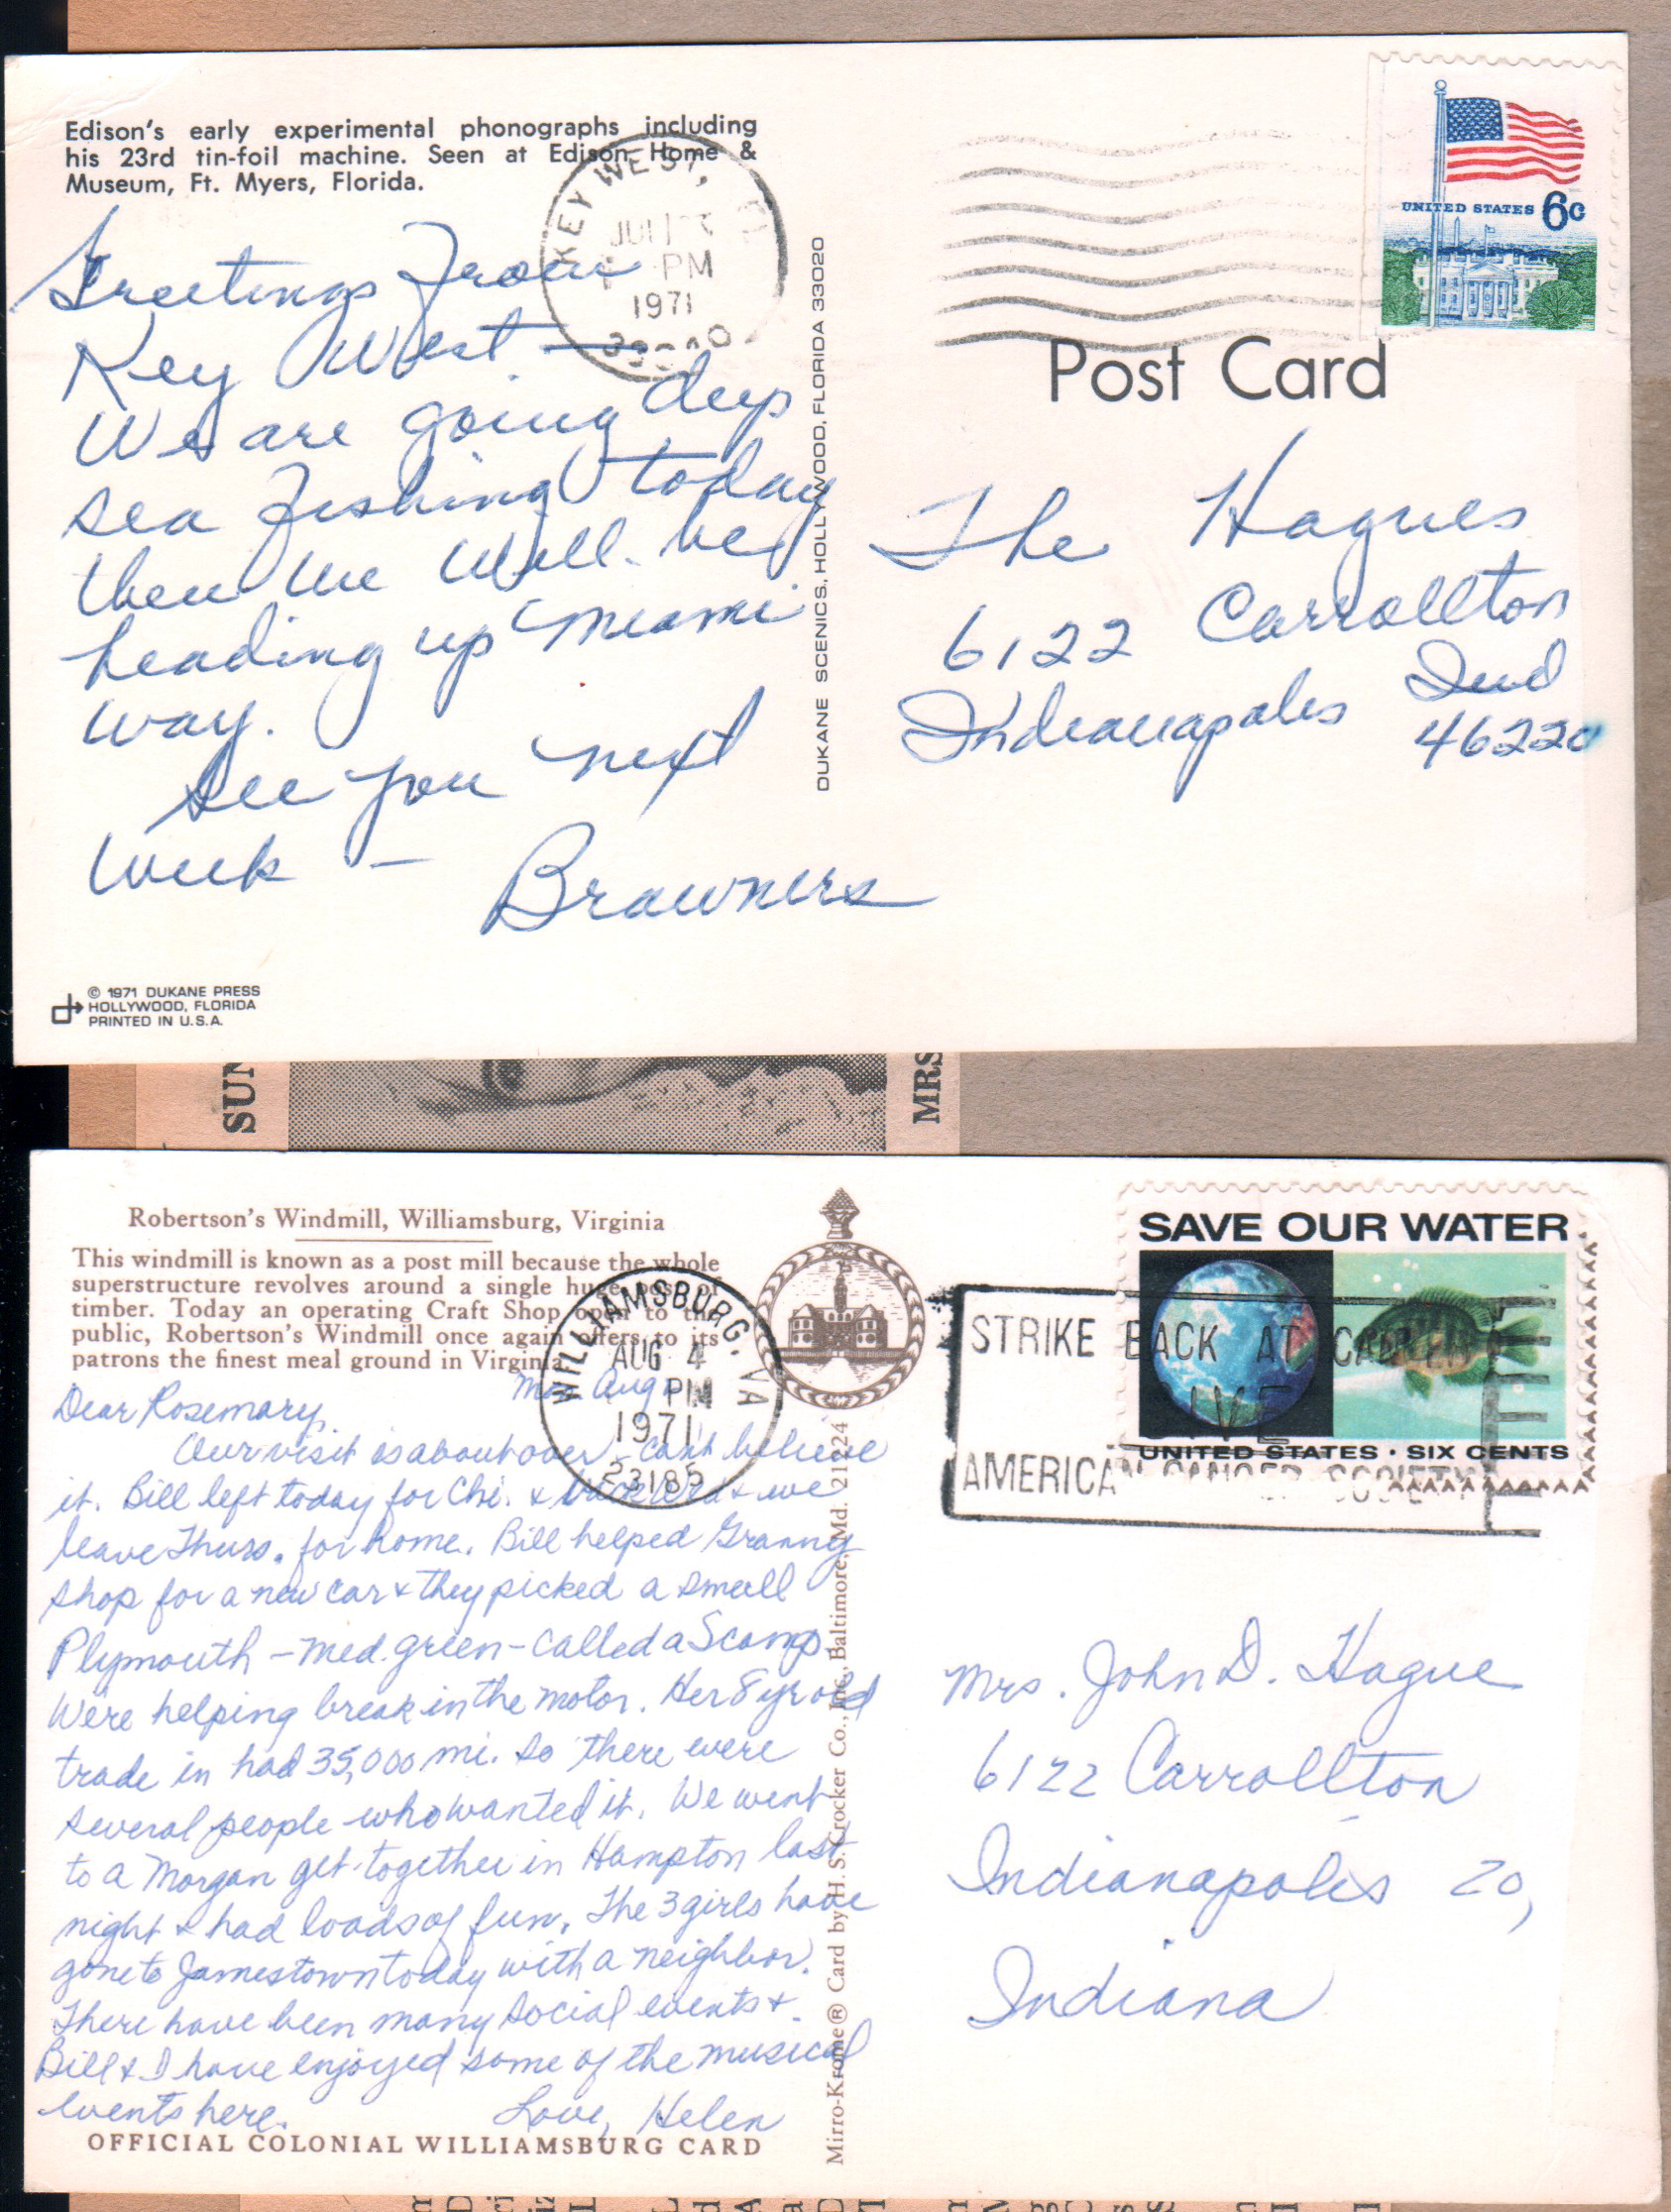 Edison's early experimental phonographs including
his 23rd tin-foil machine. Seen at Edison Home &
Museum, Ft. Myers, Florida.
KEY WEST,
PM
1971
Greetings From
Key West —
We are going deep
sea fishing today
then we will be
heading up Miami
way.
See you next
week —
Browners
© 1971 DUKANE PRESS
HOLLYWOOD, FLORIDA
PRINTED IN U.S.A.
DUKANE SCENICS, HOLLYWOOD, FLORIDA 33020
UNITED STATES 6c
Post Card
The Hagues
6122 Carrollton
Indianapolis Ind
46220
SUN
MRS
Robertson's Windmill, Williamsburg, Virginia
This windmill is known as a post mill because the whole
superstructure revolves around a single huge post of
timber. Today an operating Craft Shop open to the
public, Robertson's Windmill once again offers to its
patrons the finest meal ground in Virginia.
WILLIAMSBURG, VA
AUG 4
PM
1971
23185
Aug
Dear Rosemary,
Our visit is about over – can't believe
it. Bill left today for Chi. & & we
leave Thurs. for home. Bill helped Granny
shop for a new car & they picked a small
Plymouth – med. green – called a Scamp.
We're helping break in the motor. Her 8 yr old
trade in had 35,000 mi. so there were
several people who wanted it. We went
to a Morgan get-together in Hampton last
night & had loads of fun. The 3 girls have
gone to Jamestown today with a neighbor.
There have been many social events &
Bill & I have enjoyed some of the musical
events here. Love, Helen
OFFICIAL COLONIAL WILLIAMSBURG CARD
Mirro-Krome® Card by H. S. Crocker Co., Inc., Baltimore, Md. 21224
SAVE OUR WATER
UNITED STATES · SIX CENTS
STRIKE BACK AT CANCER
GIVE
AMERICAN CANCER SOCIETY
Mrs. John D. Hague
6122 Carrollton
Indianapolis 20,
Indiana